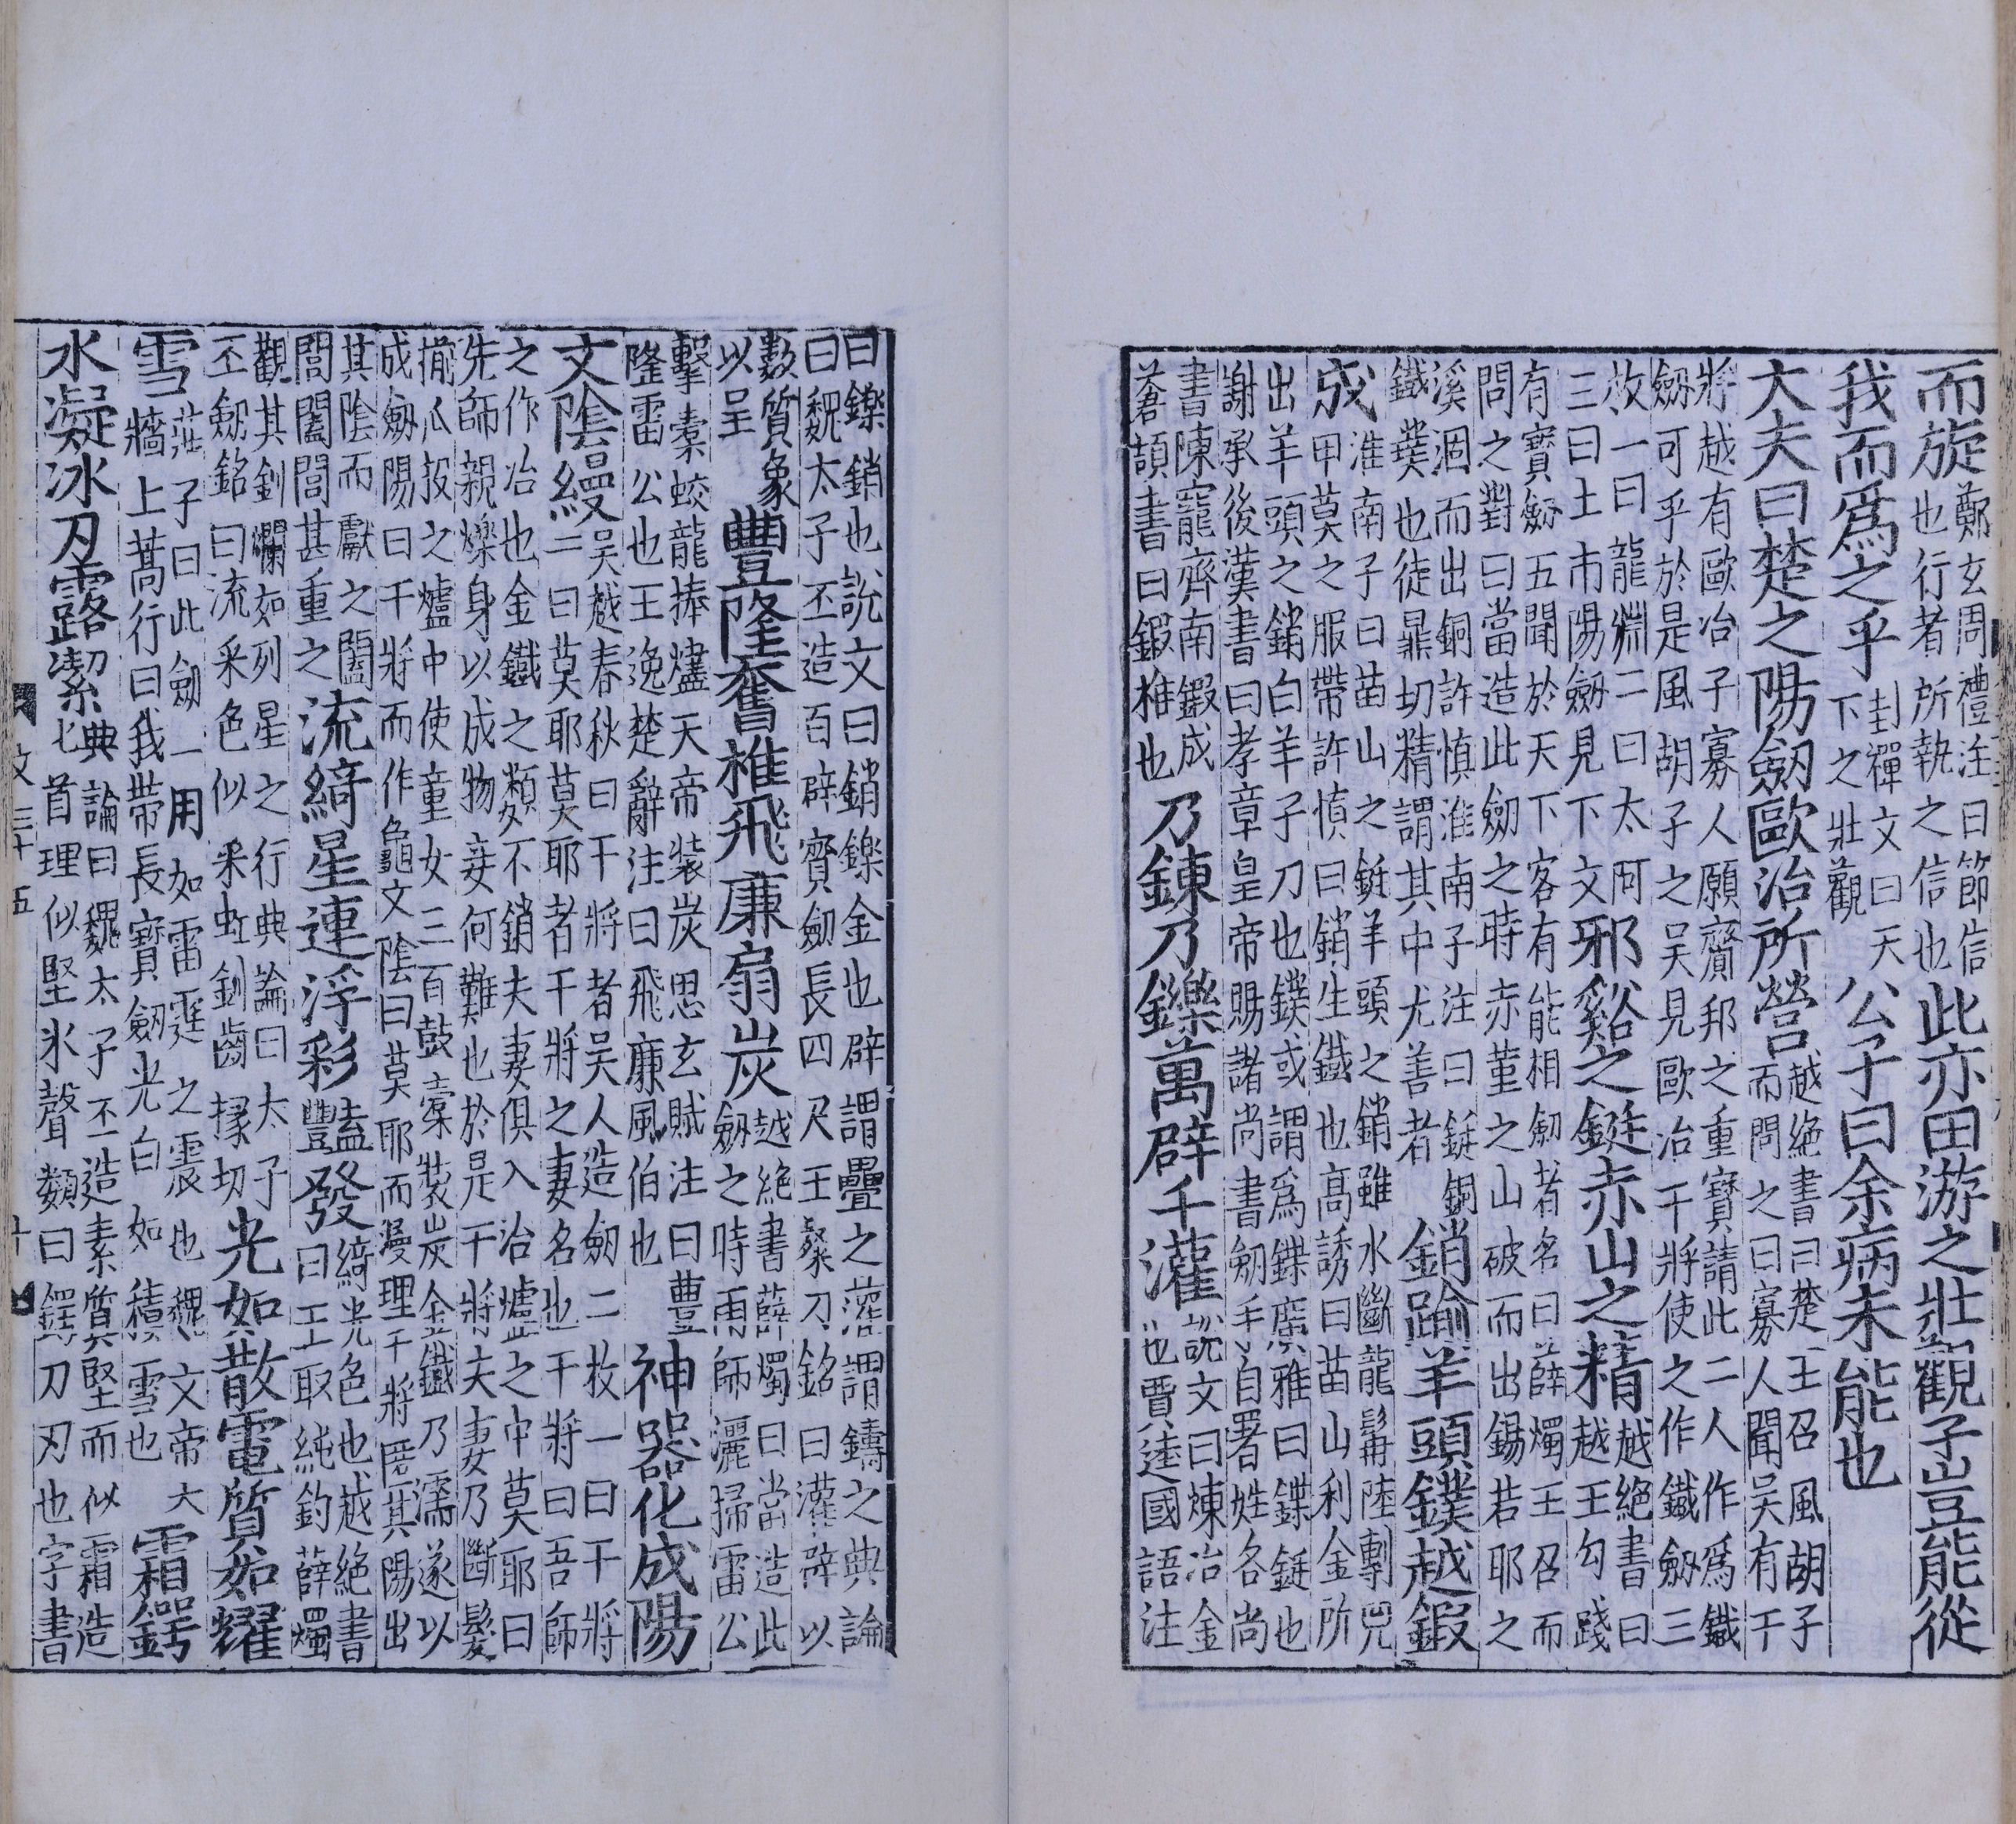 而旋鄭玄周禮注曰節信也行者所執之信也此亦田游之壯觀子豈能從
我而爲之乎封禪文曰天下之壯觀公子曰余病未能也
大夫曰楚之陽劔歐冶所營越絶書曰楚王召風胡子而問之曰寡人聞吳有干
將越有歐冶子寡人願齎邦之重寶請此二人作爲鐵
劔可乎於是風胡子之吳見歐冶干將使之作鐵劔三
枚一曰龍淵二曰太阿三曰土市陽劔見下文邪谿之鋌赤山之精越絶書曰越王勾踐
有寶劔五聞於天下客有能相劔者名曰薛燭王召而
問之對曰當造此劔之時赤堇之山破而出錫若耶之
溪涸而出銅許慎淮南子注曰鋌銅鐵璞也徒鼎切精謂其中尤善者銷踰羊頭鏷越鍜
成淮南子曰苗山之鋌羊頭之銷雖水斷龍髯陸剸兕甲莫之服帶許慎曰銷生鐵也高誘曰苗山利金所
出羊頭之銷白羊子刀也鏷或謂爲鍱廣雅曰鍱鋌也
謝承後漢書曰孝章皇帝賜諸尚書劔手自署姓各尚
書陳寵濟南鍜成蒼頡書曰鍜椎也乃鍊乃鑠萬辟千灌說文曰煉冶金也賈逵國語注
曰鑠銷也說文曰銷鑠金也辟謂疊之灌謂鑄之典論
曰魏太子丕造百辟寶劔長四尺王粲刀銘曰灌辟以
數質象以呈豐隆奮椎飛廉扇炭越絶書薛燭曰當造此劔之時雨師灑掃雷公
擊橐蛟龍捧爐天帝裝炭思玄賦注曰豐隆雷公也王逸楚辭注曰飛廉風伯也神器化成陽
文陰縵吳越春秋曰干將者吳人造劔二枚一曰干將二曰莫耶莫耶者干將之妻名也干將曰吾師
之作冶也金鐵之類不銷夫妻俱入冶爐之中莫耶曰
先師親爍身以成物妾何難也於是干將夫妻乃斷髮
揃爪投之爐中使童女三百鼓橐裝炭金鐵乃濡遂以
成劔陽曰干將而作龜文陰曰莫耶而漫理干將匿其陽出
其陰而獻之闔閭闔閭甚重之流綺星連浮彩豔發綺光色也越絶書曰王取純鈞薛燭
觀其釽爛如列星之行典論曰太子丕劔銘曰流采色似采虹釽齒掾切光如散電質如耀
雪莊子曰此劔一用如雷霆之震也魏文帝大牆上蒿行曰我帶長寶劔光白如積雪也霜鍔
水凝冰刃露潔典論曰魏太子丕造素質堅而似霜造匕首理似堅氷聲類曰鍔刀刃也字書
文三十五
十